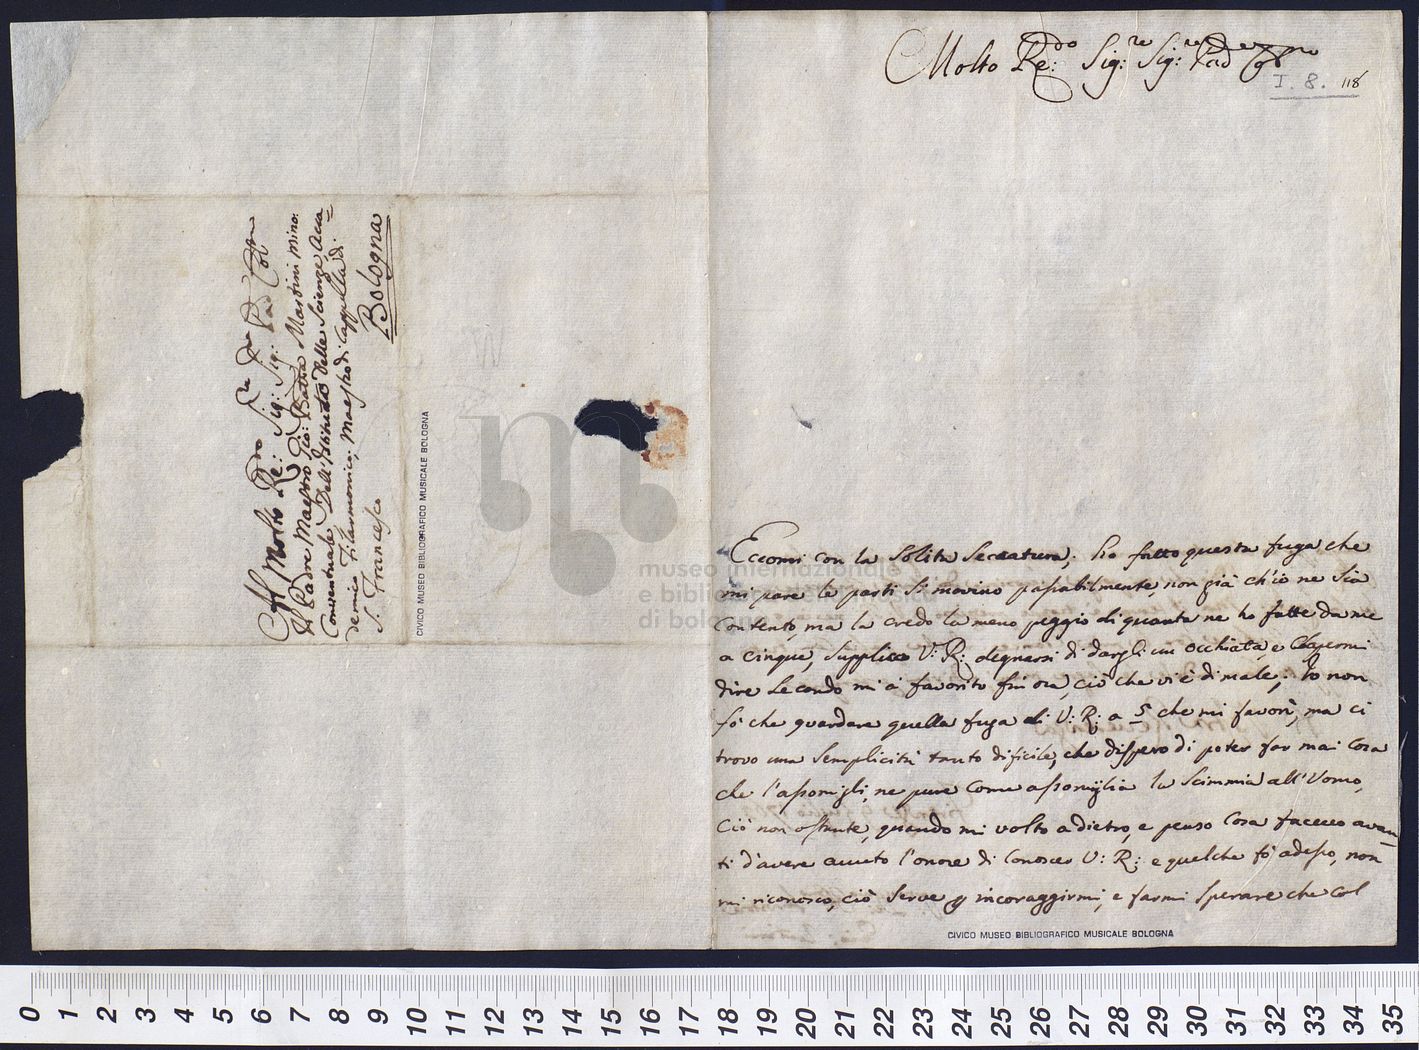 Al Molto Re:do Sig:re Sig: Pad: Col:mo
Il Padre Maestro Gio: Batta Martini Mino:
Conventuale Dell'Istituto delle Scienze, Acca=
demico Filarmonico, Maestro di Cappella di
S. Francesco
Bologna
CIVICO MUSEO BIBLIOGRAFICO MUSICALE BOLOGNA
Molto Re:do Sig:re Sig:re Pad:ne
I. 8. 118
Eccomi con la solita seccatura; ho fatto questa fuga che
mi pare le parti si movino passabilmente, non già ch'io ne sia
contento, ma la credo la meno peggio di quante ne ho fatte da me
a cinque, supplico V: R: degnarsi di dargli un occhiata, e
dire secondo mi à favorito fin ora, ciò che vi è di male; Io non
fò che guardare quella fuga di V: R: a 5 che mi favorì, ma ci
trovo una semplicità tanto dificile, che dispero di poter far mai cosa
che l'assomigli, ne pure come assomiglia la scimmia all'Uomo,
Ciò non ostante, quando mi volto a dietro, e penso cosa facevo avan=
ti d'avere avuto l'onore di conoscer V: R: e quel che fò adesso, non
mi riconosco, ciò serve p incoraggirmi, e farmi sperare che col
CIVICO MUSEO BIBLIOGRAFICO MUSICALE BOLOGNA
museo internazionale
e biblioteca della musica
di bologna
0 1 2 3 4 5 6 7 8 9 10 11 12 13 14 15 16 17 18 19 20 21 22 23 24 25 26 27 28 29 30 31 32 33 34 35